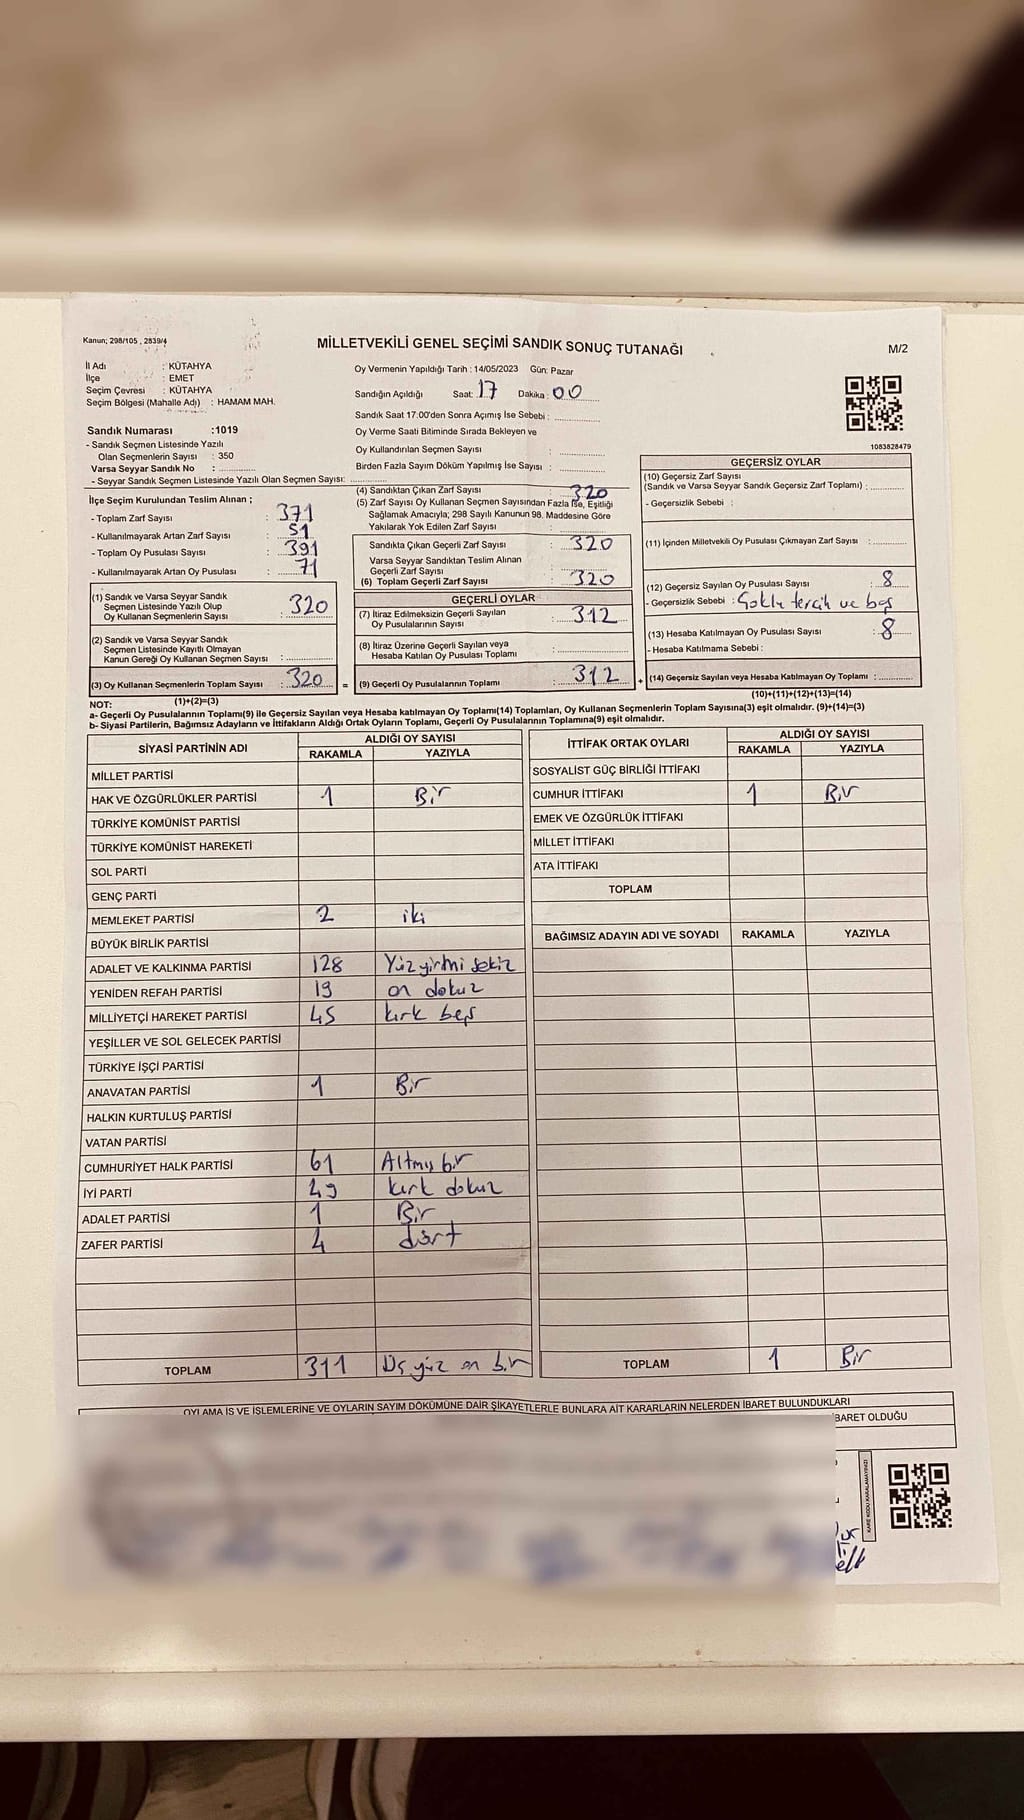 Kanun; 298/105 , 2839/4
MİLLETVEKİLİ GENEL SEÇİMİ SANDIK SONUÇ TUTANAĞI
M/2
İl Adı : KÜTAHYA
İlçe : EMET
Seçim Çevresi : KÜTAHYA
Seçim Bölgesi (Mahalle Adı) : HAMAM MAH.
Sandık Numarası :1019
- Sandık Seçmen Listesinde Yazılı
Olan Seçmenlerin Sayısı : 350
Varsa Seyyar Sandık No :
- Seyyar Sandık Seçmen Listesinde Yazılı Olan Seçmen Sayısı:
Oy Vermenin Yapıldığı Tarih : 14/05/2023 Gün: Pazar
Sandığın Açıldığı Saat: 17 Dakika : 00
Sandık Saat 17:00'den Sonra Açımış İse Sebebi :
Oy Verme Saati Bitiminde Sırada Bekleyen ve
Oy Kullandırılan Seçmen Sayısı :
Birden Fazla Sayım Döküm Yapılmış İse Sayısı :
1083828479
İlçe Seçim Kurulundan Teslim Alınan ;
- Toplam Zarf Sayısı : 371
- Kullanılmayarak Artan Zarf Sayısı : 51
- Toplam Oy Pusulası Sayısı : 391
- Kullanılmayarak Artan Oy Pusulası : 71
(1) Sandık ve Varsa Seyyar Sandık
Seçmen Listesinde Yazılı Olup
Oy Kullanan Seçmenlerin Sayısı : 320
(2) Sandık ve Varsa Seyyar Sandık
Seçmen Listesinde Kayıtlı Olmayan
Kanun Gereği Oy Kullanan Seçmen Sayısı :
(3) Oy Kullanan Seçmenlerin Toplam Sayısı : 320 =
(4) Sandıktan Çıkan Zarf Sayısı : 320
(5) Zarf Sayısı Oy Kullanan Seçmen Sayısından Fazla İse, Eşitliği
Sağlamak Amacıyla; 298 Sayılı Kanunun 98. Maddesine Göre
Yakılarak Yok Edilen Zarf Sayısı :
Sandıkta Çıkan Geçerli Zarf Sayısı : 320
Varsa Seyyar Sandıktan Teslim Alınan
Geçerli Zarf Sayısı :
(6) Toplam Geçerli Zarf Sayısı : 320
GEÇERLİ OYLAR
(7) İtiraz Edilmeksizin Geçerli Sayılan
Oy Pusulalarının Sayısı : 312
(8) İtiraz Üzerine Geçerli Sayılan veya
Hesaba Katılan Oy Pusulası Toplamı :
(9) Geçerli Oy Pusulalarının Toplamı : 312 +
GEÇERSİZ OYLAR
(10) Geçersiz Zarf Sayısı
(Sandık ve Varsa Seyyar Sandık Geçersiz Zarf Toplamı) :
- Geçersizlik Sebebi :
(11) İçinden Milletvekili Oy Pusulası Çıkmayan Zarf Sayısı :
(12) Geçersiz Sayılan Oy Pusulası Sayısı : 8
- Geçersizlik Sebebi : Çoklu tercih ve boş
(13) Hesaba Katılmayan Oy Pusulası Sayısı : 8
- Hesaba Katılmama Sebebi :
(14) Geçersiz Sayılan veya Hesaba Katılmayan Oy Toplamı :
NOT: (1)+(2)=(3)
(10)+(11)+(12)+(13)=(14)
a- Geçerli Oy Pusulalarının Toplamı(9) ile Geçersiz Sayılan veya Hesaba katılmayan Oy Toplamı(14) Toplamları, Oy Kullanan Seçmenlerin Toplam Sayısına(3) eşit olmalıdır. (9)+(14)=(3)
b- Siyasi Partilerin, Bağımsız Adayların ve İttifakların Aldığı Ortak Oyların Toplamı, Geçerli Oy Pusulalarının Toplamına(9) eşit olmalıdır.
SİYASİ PARTİNİN ADI ALDIĞI OY SAYISI
RAKAMLA YAZIYLA
MİLLET PARTİSİ
HAK VE ÖZGÜRLÜKLER PARTİSİ 1 Bir
TÜRKİYE KOMÜNİST PARTİSİ
TÜRKİYE KOMÜNİST HAREKETİ
SOL PARTİ
GENÇ PARTİ
MEMLEKET PARTİSİ 2 iki
BÜYÜK BİRLİK PARTİSİ
ADALET VE KALKINMA PARTİSİ 128 Yüz yirmi sekiz
YENİDEN REFAH PARTİSİ 19 on dokuz
MİLLİYETÇİ HAREKET PARTİSİ 45 kırk beş
YEŞİLLER VE SOL GELECEK PARTİSİ
TÜRKİYE İŞÇİ PARTİSİ
ANAVATAN PARTİSİ 1 Bir
HALKIN KURTULUŞ PARTİSİ
VATAN PARTİSİ
CUMHURİYET HALK PARTİSİ 61 Altmış bir
İYİ PARTİ 49 kırk dokuz
ADALET PARTİSİ 1 Bir
ZAFER PARTİSİ 4 dört
TOPLAM 311 Üç yüz on bir
İTTİFAK ORTAK OYLARI ALDIĞI OY SAYISI
RAKAMLA YAZIYLA
SOSYALIST GÜÇ BİRLİĞİ İTTİFAKI
CUMHUR İTTİFAKI 1 Bir
EMEK VE ÖZGÜRLÜK İTTİFAKI
MİLLET İTTİFAKI
ATA İTTİFAKI
TOPLAM
BAĞIMSIZ ADAYIN ADI VE SOYADI RAKAMLA YAZIYLA
TOPLAM 1 Bir
OYLAMA İŞ VE İŞLEMLERİNE VE OYLARIN SAYIM DÖKÜMÜNE DAİR ŞİKAYETLERLE BUNLARA AİT KARARLARIN NELERDEN İBARET BULUNDUKLARI
BARET OLDUĞU
KARE KODU KARALAMAYINIZ!